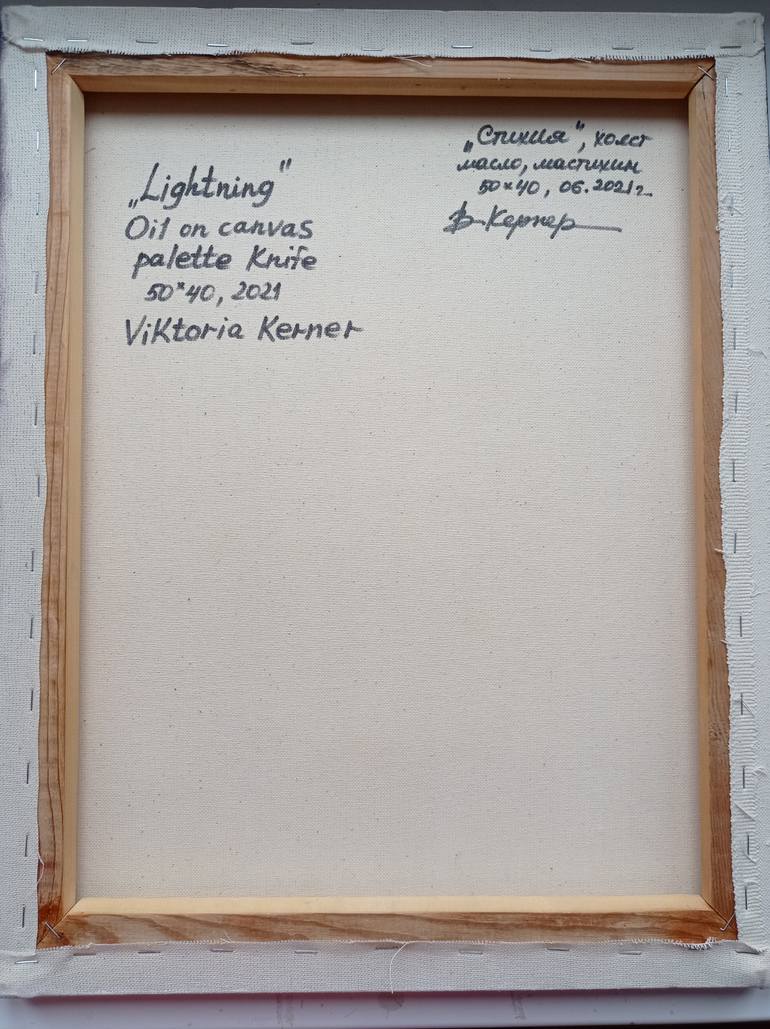 „Lightning"
Oil on canvas
palette Knife
50×40, 2021
Viktoria Kerner
„Стихия", холст
масло, мастихин
50×40, 06.2021г.
В-Кернер